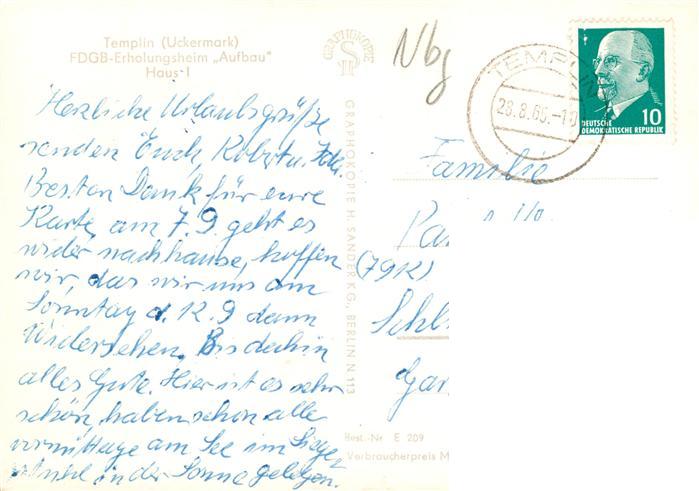 Templin (Uckermark)
FDGB-Erholungsheim „Aufbau"
Haus I
Herzliche Urlaubsgrüße
senden Euch, Robert u. Ida.
Besten Dank für eure
Karte, am 7.9. geht es
wider nachhause, hoffen
wir, das wir uns am
Sonntag d. 12.9 dann
Widersehen. Bis dachin
alles Gute. Hier ist es sehr
schön, haben schon alle
vormittage am See im Liege
stuhl in der Sonne gelegen.
GRAPHOKOPIE
GRAPHOKOPIE H. SANDER KG., BERLIN N 113
Best.-Nr. E 209
Verbraucherpreis M
Nbg
TEMPLIN
28.8.65.-10
10
DEUTSCHE
DEMOKRATISCHE REPUBLIK
Familie
(7912)